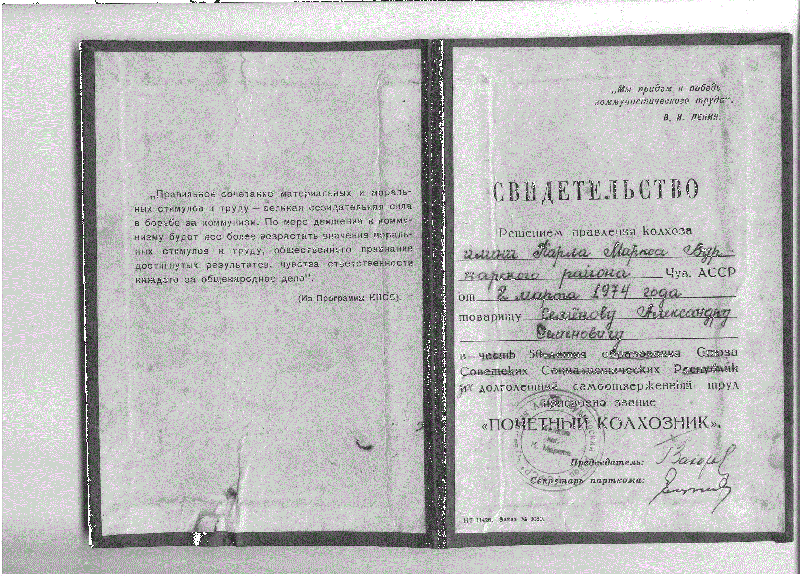 „Правильное сочетание материальных и мораль-
ных стимулов к труду — великая созидательная сила
в борьбе за коммунизм. По мере движения к комму-
низму будет все более возрастать значение мораль-
ных стимулов к труду, общественного признания
достигнутых результатов, чувства ответственности
каждого за общенародное дело".
(Из Программы КПСС).
„Мы придем к победе
коммунистического труда".
В. И. ЛЕНИН.
СВИДЕТЕЛЬСТВО
Решением правления колхоза
имени Карла Маркса Вур
нарского района Чув. АССР
от 2 марта 1974 года
товарищу Семёнову Александру
Семеновичу
в честь 50-летия образования Союза
Советских Социалистических Республик
и долголетний самоотверженный труд
присвоено звание
«ПОЧЕТНЫЙ КОЛХОЗНИК».
Председатель:
Секретарь парткома:
Заказ №